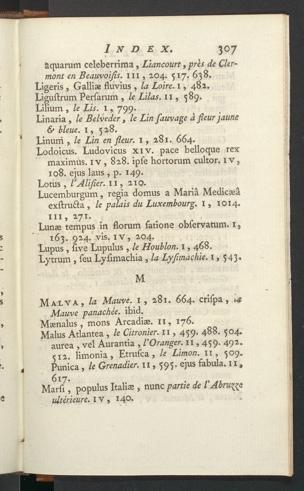 INDEX. 307
aquarum celeberrima, Liancourt, près de Cler-
mont en Beauvoisis. III, 204. 517. 638.
Ligeris, Galliæ fluvius, la Loire. I, 482.
Ligustrum Persarum, le Lilas. II, 589.
Lilium, le Lis. I, 799.
Linaria, le Belveder, le Lin sauvage à fleur jaune
& bleue. I, 528.
Linum, le Lin en fleur. I, 281. 664.
Lodoicus. Ludovicus XIV. pace belloque rex
maximus. IV, 828. ipse hortorum cultor. IV,
108. ejus laus, p. 149.
Lotus, l'Alisier. II, 210.
Lucemburgum, regia domus a Mariâ Medicæâ
exstructa, le palais du Luxembourg. I, 1014.
III, 271.
Lunæ tempus in florum satione observatum. I,
163. 924. vis. IV, 204.
Lupus, sive Lupulus, le Houblon. I, 468.
Lytrum, seu Lysimachia, la Lysimachie. I, 543.
M
MALVA, la Mauve. I, 281. 664. crispa, la
Mauve panachée. ibid.
Mænalus, mons Arcadiæ. II, 176.
Malus Atlantea, le Citronier. II, 459. 488. 504.
aurea, vel Aurantia, l'Oranger. II, 459. 492.
512. limonia, Etrusca, le Limon. II, 509.
Punica, le Grenadier. II, 595. ejus fabula. II,
617.
Marsi, populus Italiæ, nunc partie de l'Abruzze
ultérieure. IV, 140.